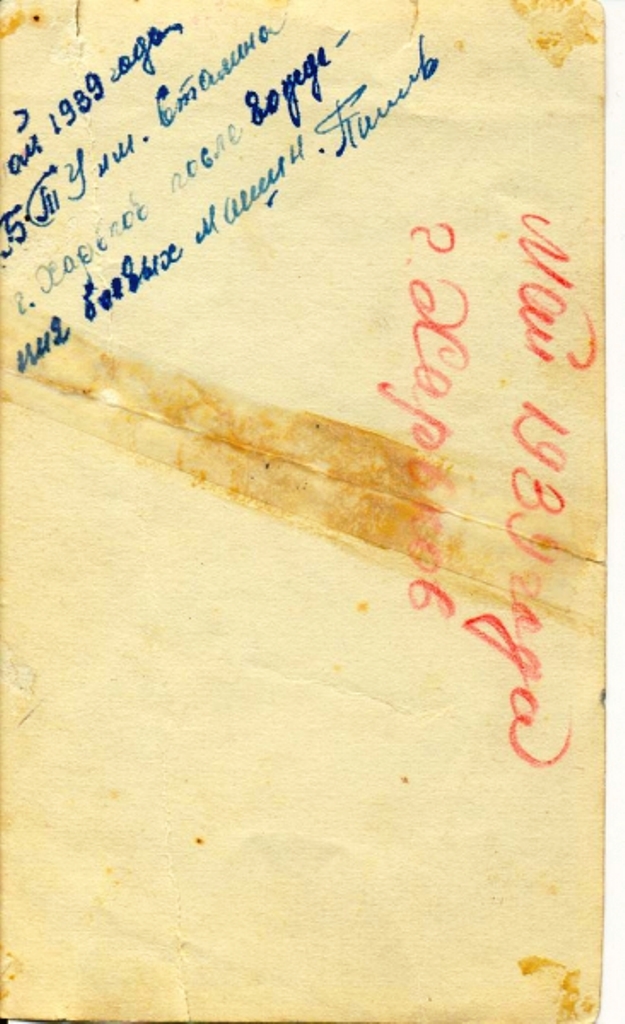 ай 1939 года,
БТУ им. Сталина
г. Харьков после вожде-
ния боевых машин.
Май 1939 года
г. Харьков